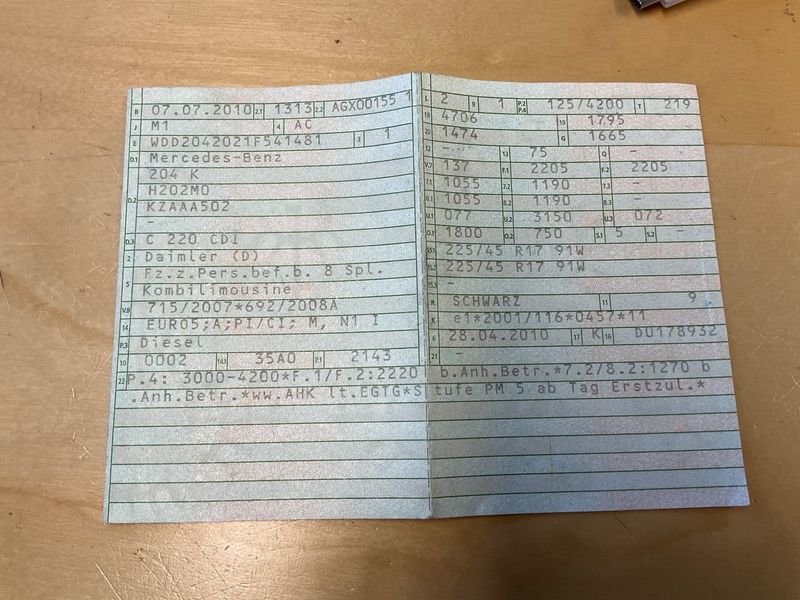 B 07.07.2010 2.1 1313 2.2 AGX00155 1
J M1 4 AC
E WDD2042021F541481 3 1
D.1 Mercedes-Benz
204 K
H202M0
D.2 KZAAA502
-
D.3 C 220 CDI
2 Daimler (D)
5 Fz.z.Pers.bef.b. 8 Spl.
Kombilimousine
V.9 715/2007*692/2008A
14 EURO5;A;PI/CI; M, N1 I
P.3 Diesel
10 0002 14.1 35A0 P.1 2143
L 2 9 1 P.2 P.4 125/4200 T 219
18 4706 - 19 1795
20 1474 - G 1665
12 - 13 75 Q -
V.7 137 F.1 2205 F.2 2205
7.1 1055 7.2 1190 7.3 -
8.1 1055 8.2 1190 8.3 -
U.1 077 U.2 3150 U.3 072
O.1 1800 O.2 750 S.1 5 S.2 -
15.1 225/45 R17 91W
15.2 225/45 R17 91W
15.3 -
R SCHWARZ 11 9
K e1*2001/116*0457*11
6 28.04.2010 17 K 16 DU178932
21 -
22 P.4: 3000-4200*F.1/F.2:2220 b.Anh.Betr.*7.2/8.2:1270 b
.Anh.Betr.*ww.AHK lt.EGTG*Stufe PM 5 ab Tag Erstzul.*